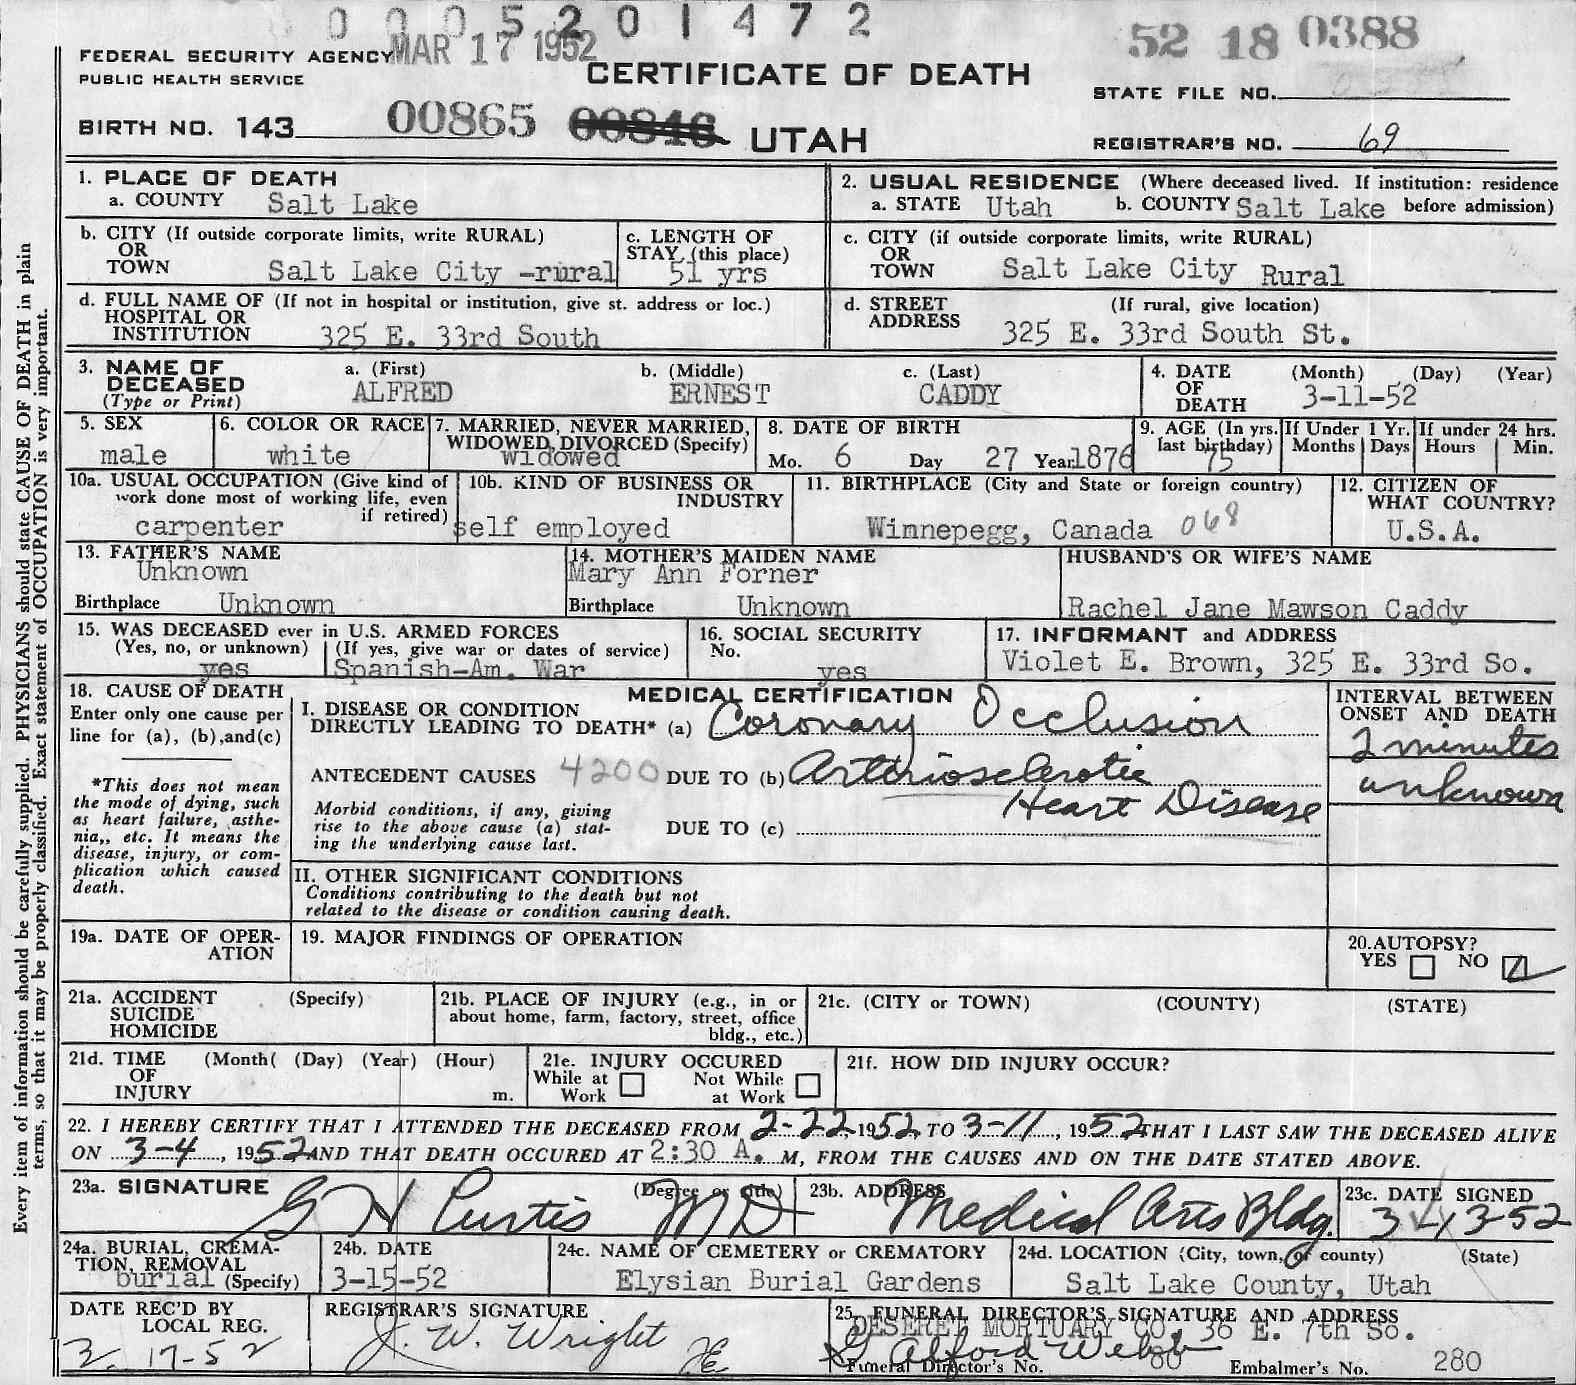 0 0 0 5 2 0 1 4 7 2
MAR 17 1952
52 18 0388
FEDERAL SECURITY AGENCY
PUBLIC HEALTH SERVICE
CERTIFICATE OF DEATH
STATE FILE NO.
BIRTH NO. 143 00865 00846 UTAH
REGISTRAR'S NO. 69
Every item of information should be carefully supplied. PHYSICIANS should state CAUSE OF DEATH in plain
terms, so that it may be properly classified. Exact statement of OCCUPATION is very important.
1. PLACE OF DEATH
a. COUNTY Salt Lake
2. USUAL RESIDENCE (Where deceased lived. If institution: residence
a. STATE Utah b. COUNTY Salt Lake before admission)
b. CITY (If outside corporate limits, write RURAL)
OR
TOWN Salt Lake City -rural
c. LENGTH OF
STAY (this place)
51 yrs
c. CITY (if outside corporate limits, write RURAL)
OR
TOWN Salt Lake City Rural
d. FULL NAME OF (If not in hospital or institution, give st. address or loc.)
HOSPITAL OR
INSTITUTION 325 E. 33rd South
d. STREET (If rural, give location)
ADDRESS 325 E. 33rd South St.
3. NAME OF a. (First) b. (Middle) c. (Last)
DECEASED ALFRED ERNEST CADDY
(Type or Print)
4. DATE (Month) (Day) (Year)
OF
DEATH 3-11-52
5. SEX
male
6. COLOR OR RACE
white
7. MARRIED, NEVER MARRIED,
WIDOWED, DIVORCED (Specify)
widowed
8. DATE OF BIRTH
Mo. 6 Day 27 Year 1876
9. AGE (In yrs.
last birthday)
75
If Under 1 Yr.
Months Days
If under 24 hrs.
Hours Min.
10a. USUAL OCCUPATION (Give kind of
work done most of working life, even
if retired)
carpenter
10b. KIND OF BUSINESS OR
INDUSTRY
self employed
11. BIRTHPLACE (City and State or foreign country)
Wimnepegg, Canada 068
12. CITIZEN OF
WHAT COUNTRY?
U.S.A.
13. FATHER'S NAME
Unknown
Birthplace Unknown
14. MOTHER'S MAIDEN NAME
Mary Ann Forner
Birthplace Unknown
HUSBAND'S OR WIFE'S NAME
Rachel Jane Mawson Caddy
15. WAS DECEASED ever in U.S. ARMED FORCES
(Yes, no, or unknown) (If yes, give war or dates of service)
yes Spanish-Am. War
16. SOCIAL SECURITY
No.
yes
17. INFORMANT and ADDRESS
Violet E. Brown, 325 E. 33rd So.
18. CAUSE OF DEATH
Enter only one cause per
line for (a), (b),and(c)
*This does not mean
the mode of dying, such
as heart failure, asthe-
nia,, etc. It means the
disease, injury, or com-
plication which caused
death.
MEDICAL CERTIFICATION
I. DISEASE OR CONDITION
DIRECTLY LEADING TO DEATH* (a) Coronary Occlusion
ANTECEDENT CAUSES 4200 DUE TO (b) Arteriosclerotic
Heart Disease
Morbid conditions, if any, giving
rise to the above cause (a) stat-
ing the underlying cause last.
DUE TO (c)
INTERVAL BETWEEN
ONSET AND DEATH
2 minutes
unknown
II. OTHER SIGNIFICANT CONDITIONS
Conditions contributing to the death but not
related to the disease or condition causing death.
19a. DATE OF OPER-
ATION
19. MAJOR FINDINGS OF OPERATION
20.AUTOPSY?
YES NO
21a. ACCIDENT (Specify)
SUICIDE
HOMICIDE
21b. PLACE OF INJURY (e.g., in or
about home, farm, factory, street, office
bldg., etc.)
21c. (CITY or TOWN) (COUNTY) (STATE)
21d. TIME (Month( (Day) (Year) (Hour)
OF
INJURY m.
21e. INJURY OCCURED
While at Not While
Work at Work
21f. HOW DID INJURY OCCUR?
22. I HEREBY CERTIFY THAT I ATTENDED THE DECEASED FROM 2-22, 1952, TO 3-11, 1952 THAT I LAST SAW THE DECEASED ALIVE
ON 3-4, 1952 AND THAT DEATH OCCURED AT 2:30 A. M, FROM THE CAUSES AND ON THE DATE STATED ABOVE.
23a. SIGNATURE (Degree or title)
G H Curtis MD
23b. ADDRESS
Medical Arts Bldg.
23c. DATE SIGNED
3-13-52
24a. BURIAL, CREMA-
TION, REMOVAL
burial (Specify)
24b. DATE
3-15-52
24c. NAME OF CEMETERY or CREMATORY
Elysian Burial Gardens
24d. LOCATION (City, town, or county) (State)
Salt Lake County, Utah
DATE REC'D BY
LOCAL REG.
3-17-52
REGISTRAR'S SIGNATURE
J. W. Wright
25. FUNERAL DIRECTOR'S SIGNATURE AND ADDRESS
DESERET MORTUARY CO. 36 E. 7th So.
G Alford Webb
Funeral Director's No. 80 Embalmer's No. 280